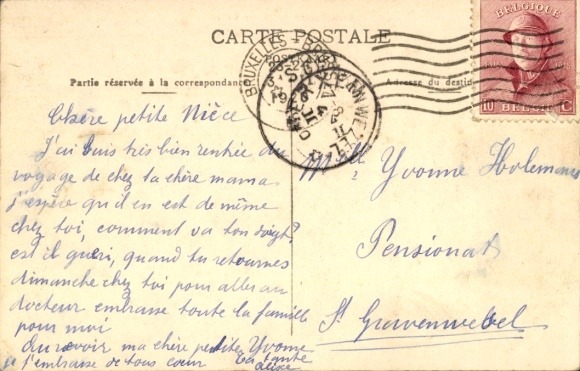 CARTE POSTALE
BELGIQUE
BELGIË
10
C
BRUXELLES
Partie réservée à la correspondance
Adresse du destin
Chère petite Nièce
J'ai suis très bien rentrée du
voyage de chez ta chère mama
j'espère qu'il en est de même
chez toi, comment va ton doigt?
est il guéri, quand tu retournes
dimanche chez toi pour aller au
docteur embrasse toute la famille
pour moi
Au revoir ma chère petite Yvonne
je t'embrasse de tous coeur
Ta tante
Mlle Yvonne Holemans
Pensionat
St Gravenwezel